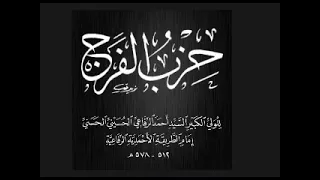 حزب الفرج
للولي الكبير السيد أحمد الرفاعي الحسيني الحسني
إمام الطريقة الأحمدية الرفاعية
٥١٢ - ٥٧٨ هـ